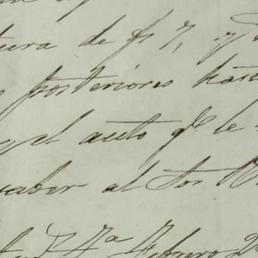 tura de f 7, y
posteriores hasta
y el auto qe le
saber al Sor
7a Febrero 2